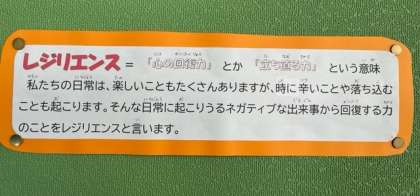 レジリエンス = 「心の回復力」 とか 「立ち直る力」 という意味
私たちの日常は、楽しいこともたくさんありますが、時に辛いことや落ち込む
ことも起こります。そんな日常に起こりうるネガティブな出来事から回復する力
のことをレジリエンスと言います。